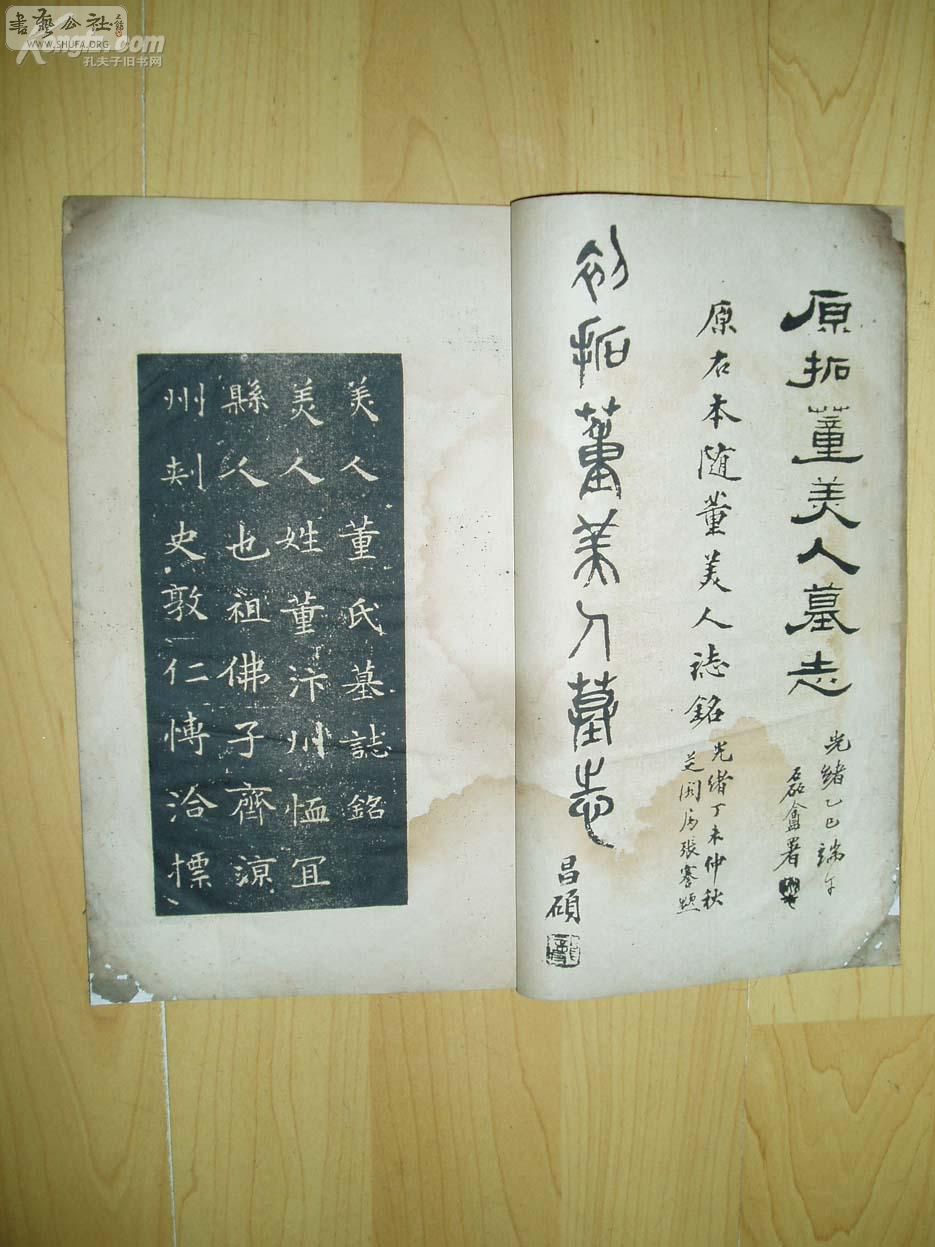 書藝公社
WWW.SHUFA.ORG
Kongfz.com
孔夫子旧书网
原拓董美人墓志
光緒乙巳端午
磊盦署
原石本隨董美人誌銘
光緒丁未仲秋
張謇題
初拓董美人墓志
昌碩
美人董氏墓誌銘
美人姓董汴州恤宜
縣人也祖佛子齊涼
州刺史敦仁愽洽標